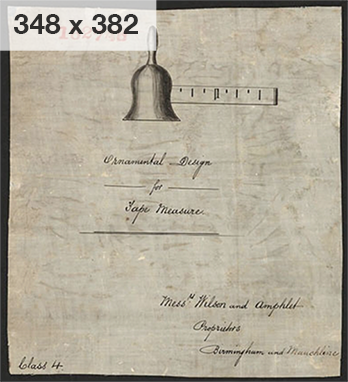 348 x 382
Ornamental Design
for
Tape Measure
Messrs Wilson and Amphlet
Proprietors
Birmingham and Mauchline
Class 4